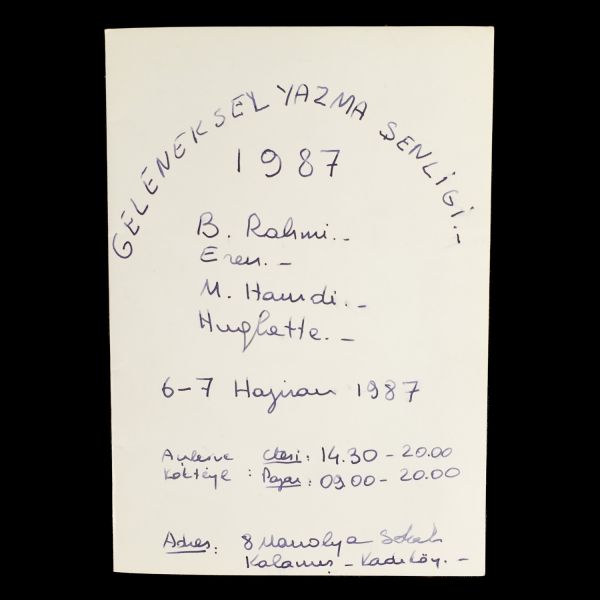 GELENEKSEL YAZMA ŞENLİGİ.-
1987
B. Rahmi.-
Eren.-
M. Hamdi.-
Hughette.-
6-7 Haziran 1987
Açılış ve Ctesi: 14.30 - 20.00
Kokteyl : Pazar: 09.00 - 20.00
Adres: 8 Manolya Sokak
Kalamış - Kadıköy.-